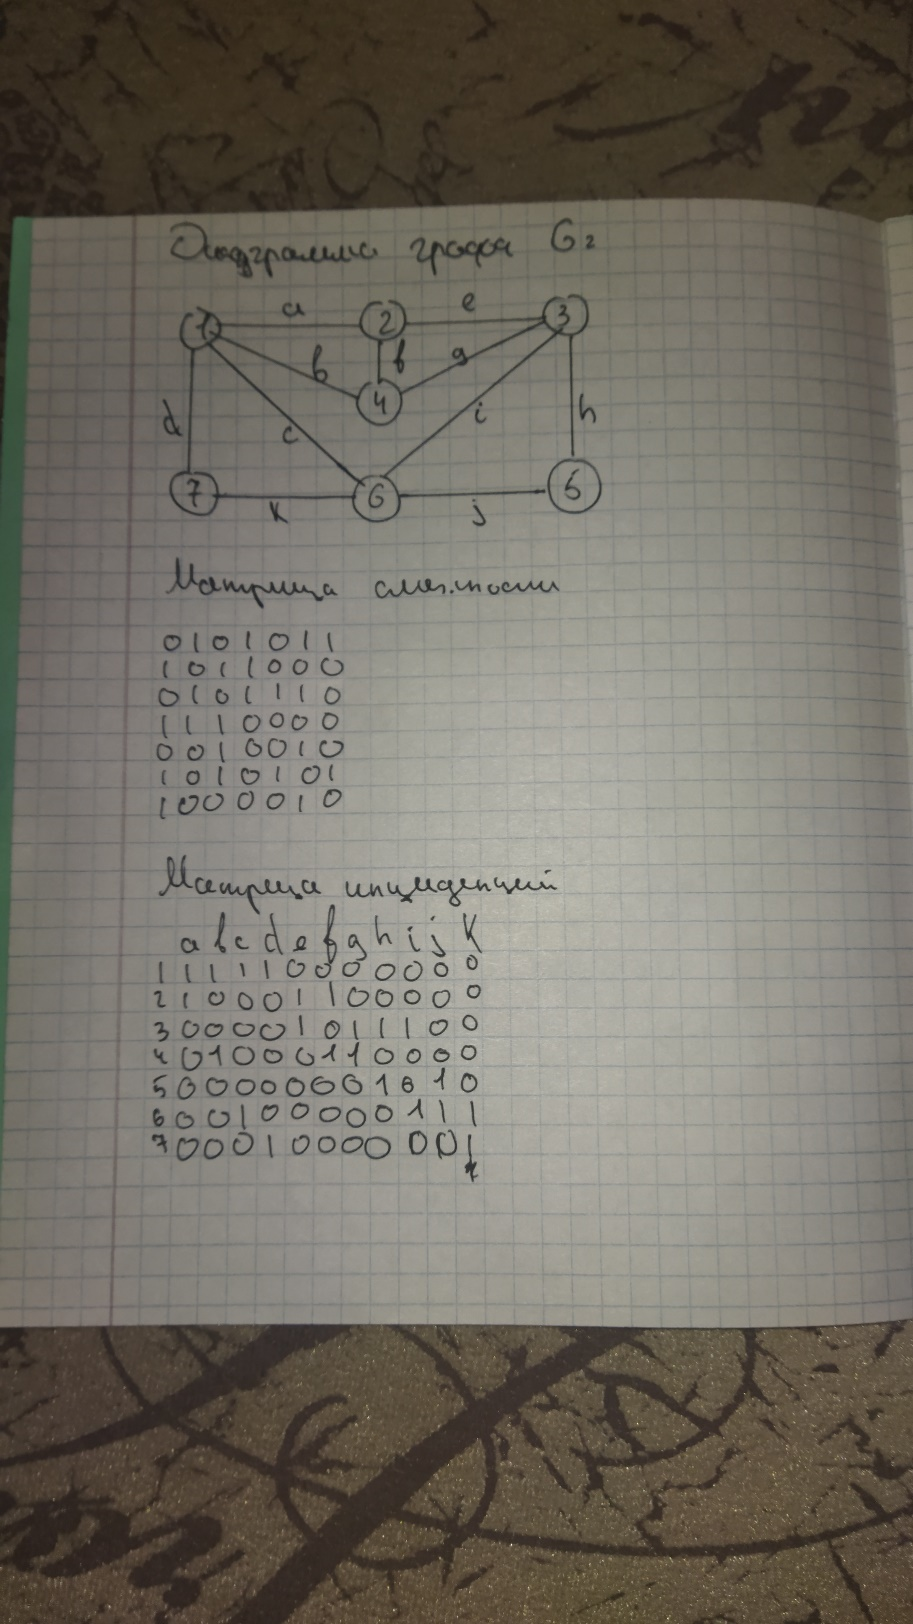 Диаграмма графа G₂
a e
1 2 3
b f g
4
d c i h
7 6 6
k j
Матрица смежности
0101011
1011000
0101110
1110000
0010010
1010101
1000010
Матрица инциденций
a b c d e f g h i j k
1 1 1 1 1 0 0 0 0 0 0 0
2 1 0 0 0 1 1 0 0 0 0 0
3 0 0 0 0 1 0 1 1 1 0 0
4 0 1 0 0 0 1 1 0 0 0 0
5 0 0 0 0 0 0 0 1 0 1 0
6 0 0 1 0 0 0 0 0 1 1 1
7 0 0 0 1 0 0 0 0 0 0 1